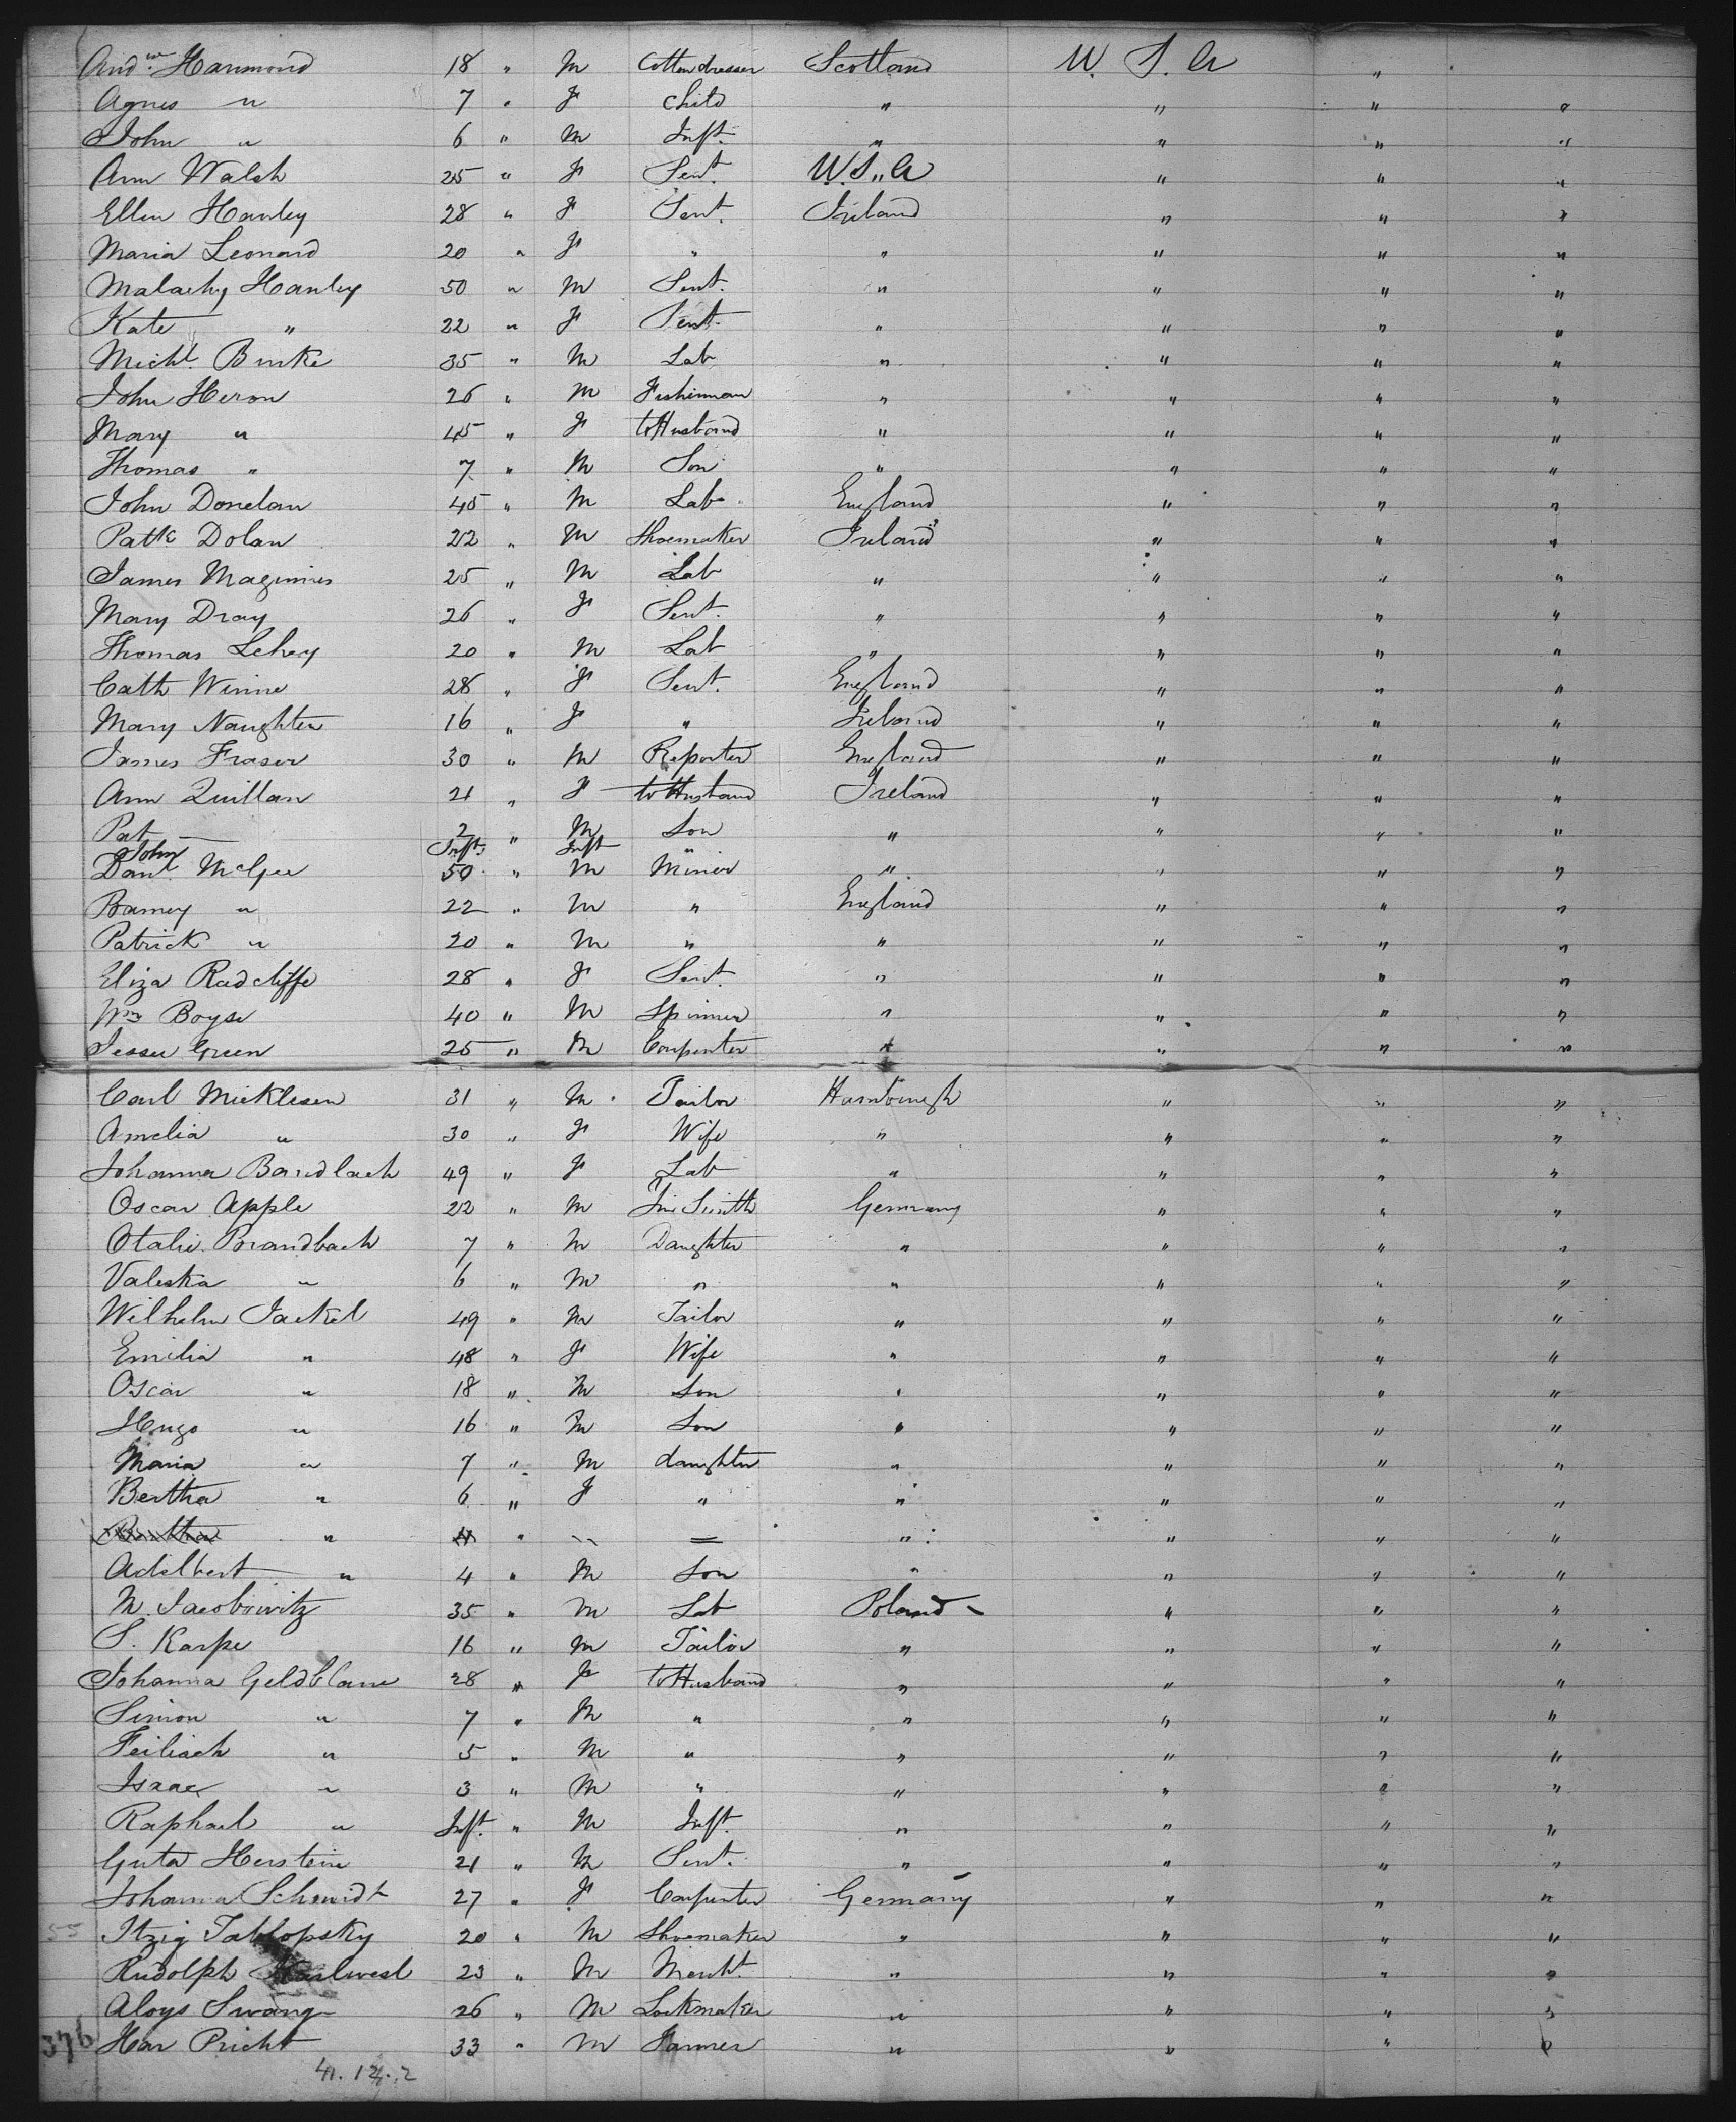 Andw. Hammond 18 " M Cotton dresser Scotland U. S. A "
Agnes " 7 " F Child " " " "
John " 6 " M Inft. " " " "
Ann Walsh 25 " F Sert. U.S.,A " " "
Ellen Hanley 28 " F Sert. Ireland " " "
Maria Leonard 20 " F " " " " "
Malachy Hanley 50 " M Sert. " " " "
Kate " 22 " F Sert. " " " "
Michl. Burke 35 " M Lab " " " "
John Heron 26 " M Fisherman " " " "
Mary " 45 " F to Husband " " " "
Thomas " 7 " M Son " " " "
John Donelan 45 " M Lab England " " "
Patk Dolan 22 " M Shoemaker Ireland " " "
James Maginnis 25 " M Lab " " " "
Mary Dray 26 " F Sert. " " " "
Thomas Lehey 20 " M Lab " " " "
Cath Winne 28 " F Sert. England " " "
Mary Naughten 16 " F " Ireland " " "
James Fraser 30 " M Reporter England " " "
Ann Quillan 21 " F to Husband Ireland " " "
Pat — 2 " M Son " " " "
John Inft. Inft "
Danl. McGee 50 " M Miner " " " "
Barney " 22 " M " England " " "
Patrick " 20 " M " " " " "
Eliza Radcliffe 28 " F Sert. " " " "
Wm Boyse 40 " M Spinner " " " "
Jesse Green 25 " M Carpenter " " " "
Carl Micklesen 31 " M Tailor Hambourgh " " "
Amelia " 30 " F Wife " " " "
Johanna Bandlach 49 " F Lab " " " "
Oscar Apple 22 " M Tin Smith Germany " " "
Otalie Brandbach 7 " M Daughter " " " "
Valeska " 6 " M " " " " "
Wilhelm Jackel 49 " M Tailor " " " "
Emilia " 48 " F Wife " " " "
Oscar " 18 " M Son " " " "
Hugo " 16 " M Son " " " "
Maria " 7 " M daughter " " " "
Bertha " 6 " F " " " " "
Bertha " 4 " " = " " " "
Adelbert " 4 " M Son " " " "
M. Jacobowitz 35 " M Lab Poland " " "
S. Karpe 16 " M Tailor " " " "
Johanna Geldblane 28 " F to Husband " " " "
Simon " 7 " M " " " " "
Feiliach " 5 " M " " " " "
Isaac " 3 " M " " " " "
Raphael " Inft. " M Inft. " " " "
Guta Herstein 21 " M Sert. " " " "
Johanna Schmidt 27 " F Carpenter Germany " " "
55 Itzig Tablopsky 20 " M Shoemaker " " " "
Rudolph 23 " M Mercht. " " " "
Aloys Swang 26 " M Lockmaker " " " "
376 Har Pricht 33 " M Farmer " " " "